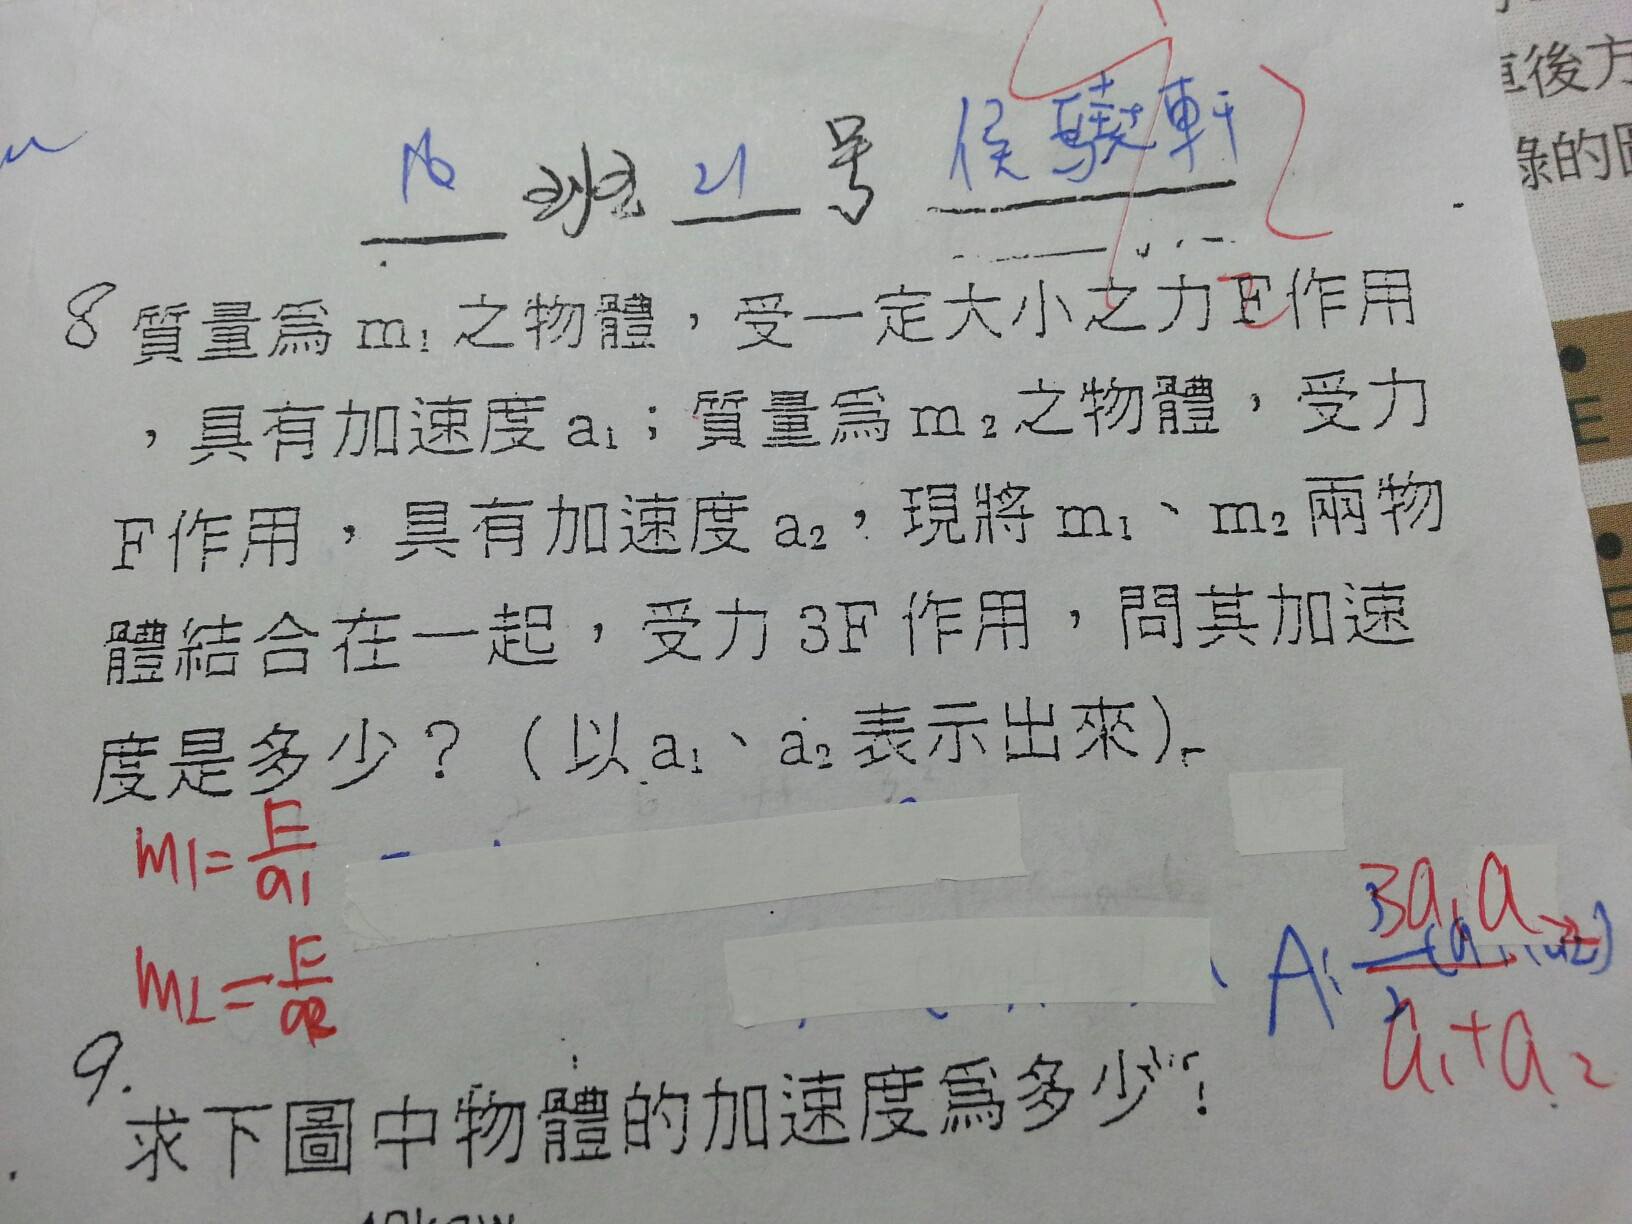 直後方
錄的圖
16 班 21 号 侯驥軒
8 質量為m₁之物體，受一定大小之力F作用
，具有加速度a₁；質量為m₂之物體，受力
F作用，具有加速度a₂，現將m₁、m₂兩物
體結合在一起，受力3F作用，問其加速
度是多少？（以a₁、a₂表示出來）
m1=F/a1
m2=F/a2
A: 3a₁a₂/a₁+a₂
9.
求下圖中物體的加速度為多少？